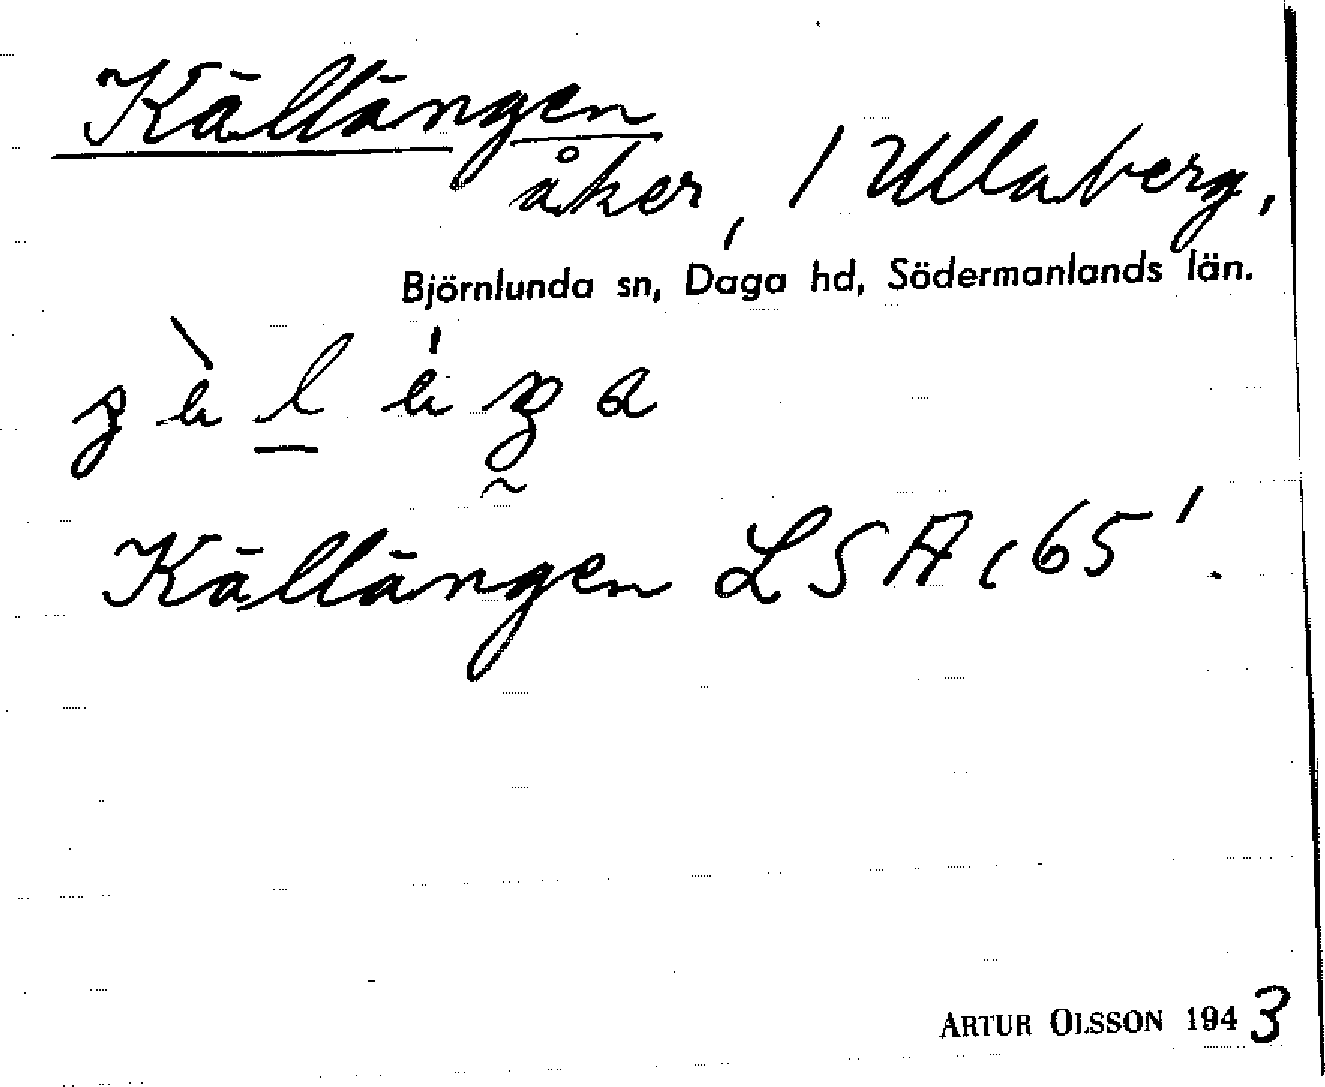 Källängen
åker, / Ullaberg,
Björnlunda sn, Daga hd, Södermanlands län.
Källängen LSA c 65'.
ARTUR OLSSON 1943